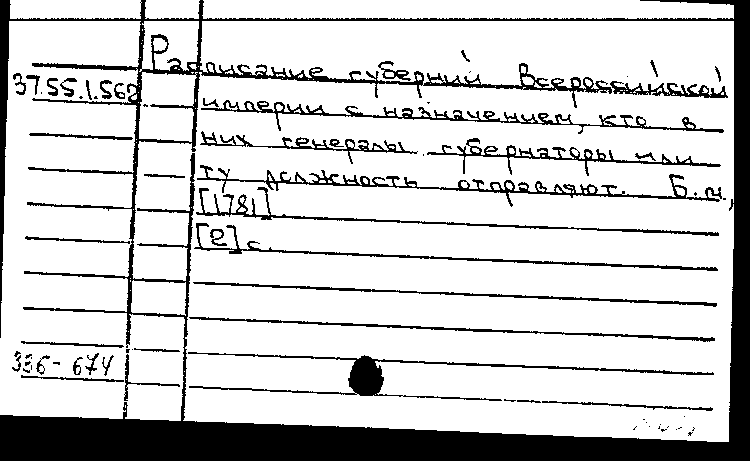 Расписание губерний Всероссийской
37.55.1.562
империи с назначением, кто в
них генералы губернаторы или
ту должность отправляют. Б.м.,
[1781].
[2] с.
336-674